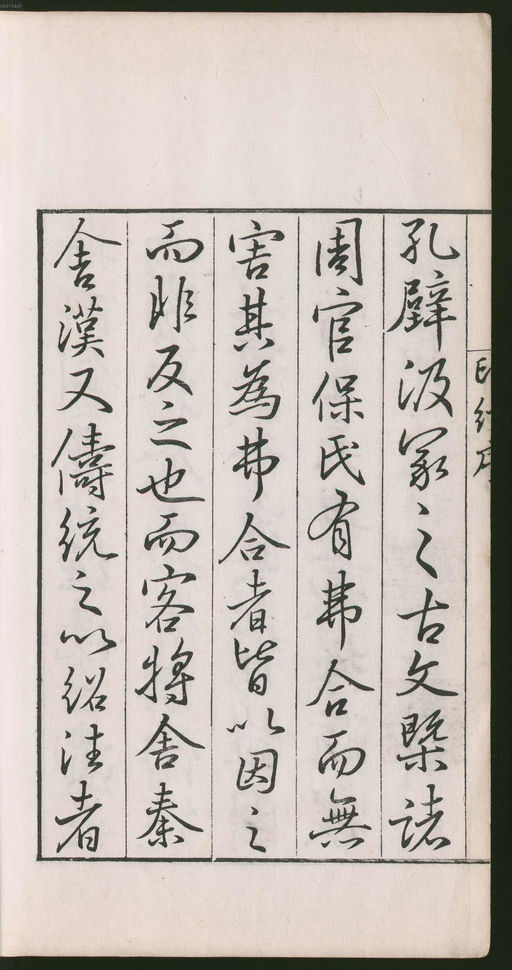 孔壁汲冢之古文槩諸
周官保氏有弗合而無
害其為弗合者皆以因之
而非反之也而客將舍秦
舍漢又儔統之以紹注者